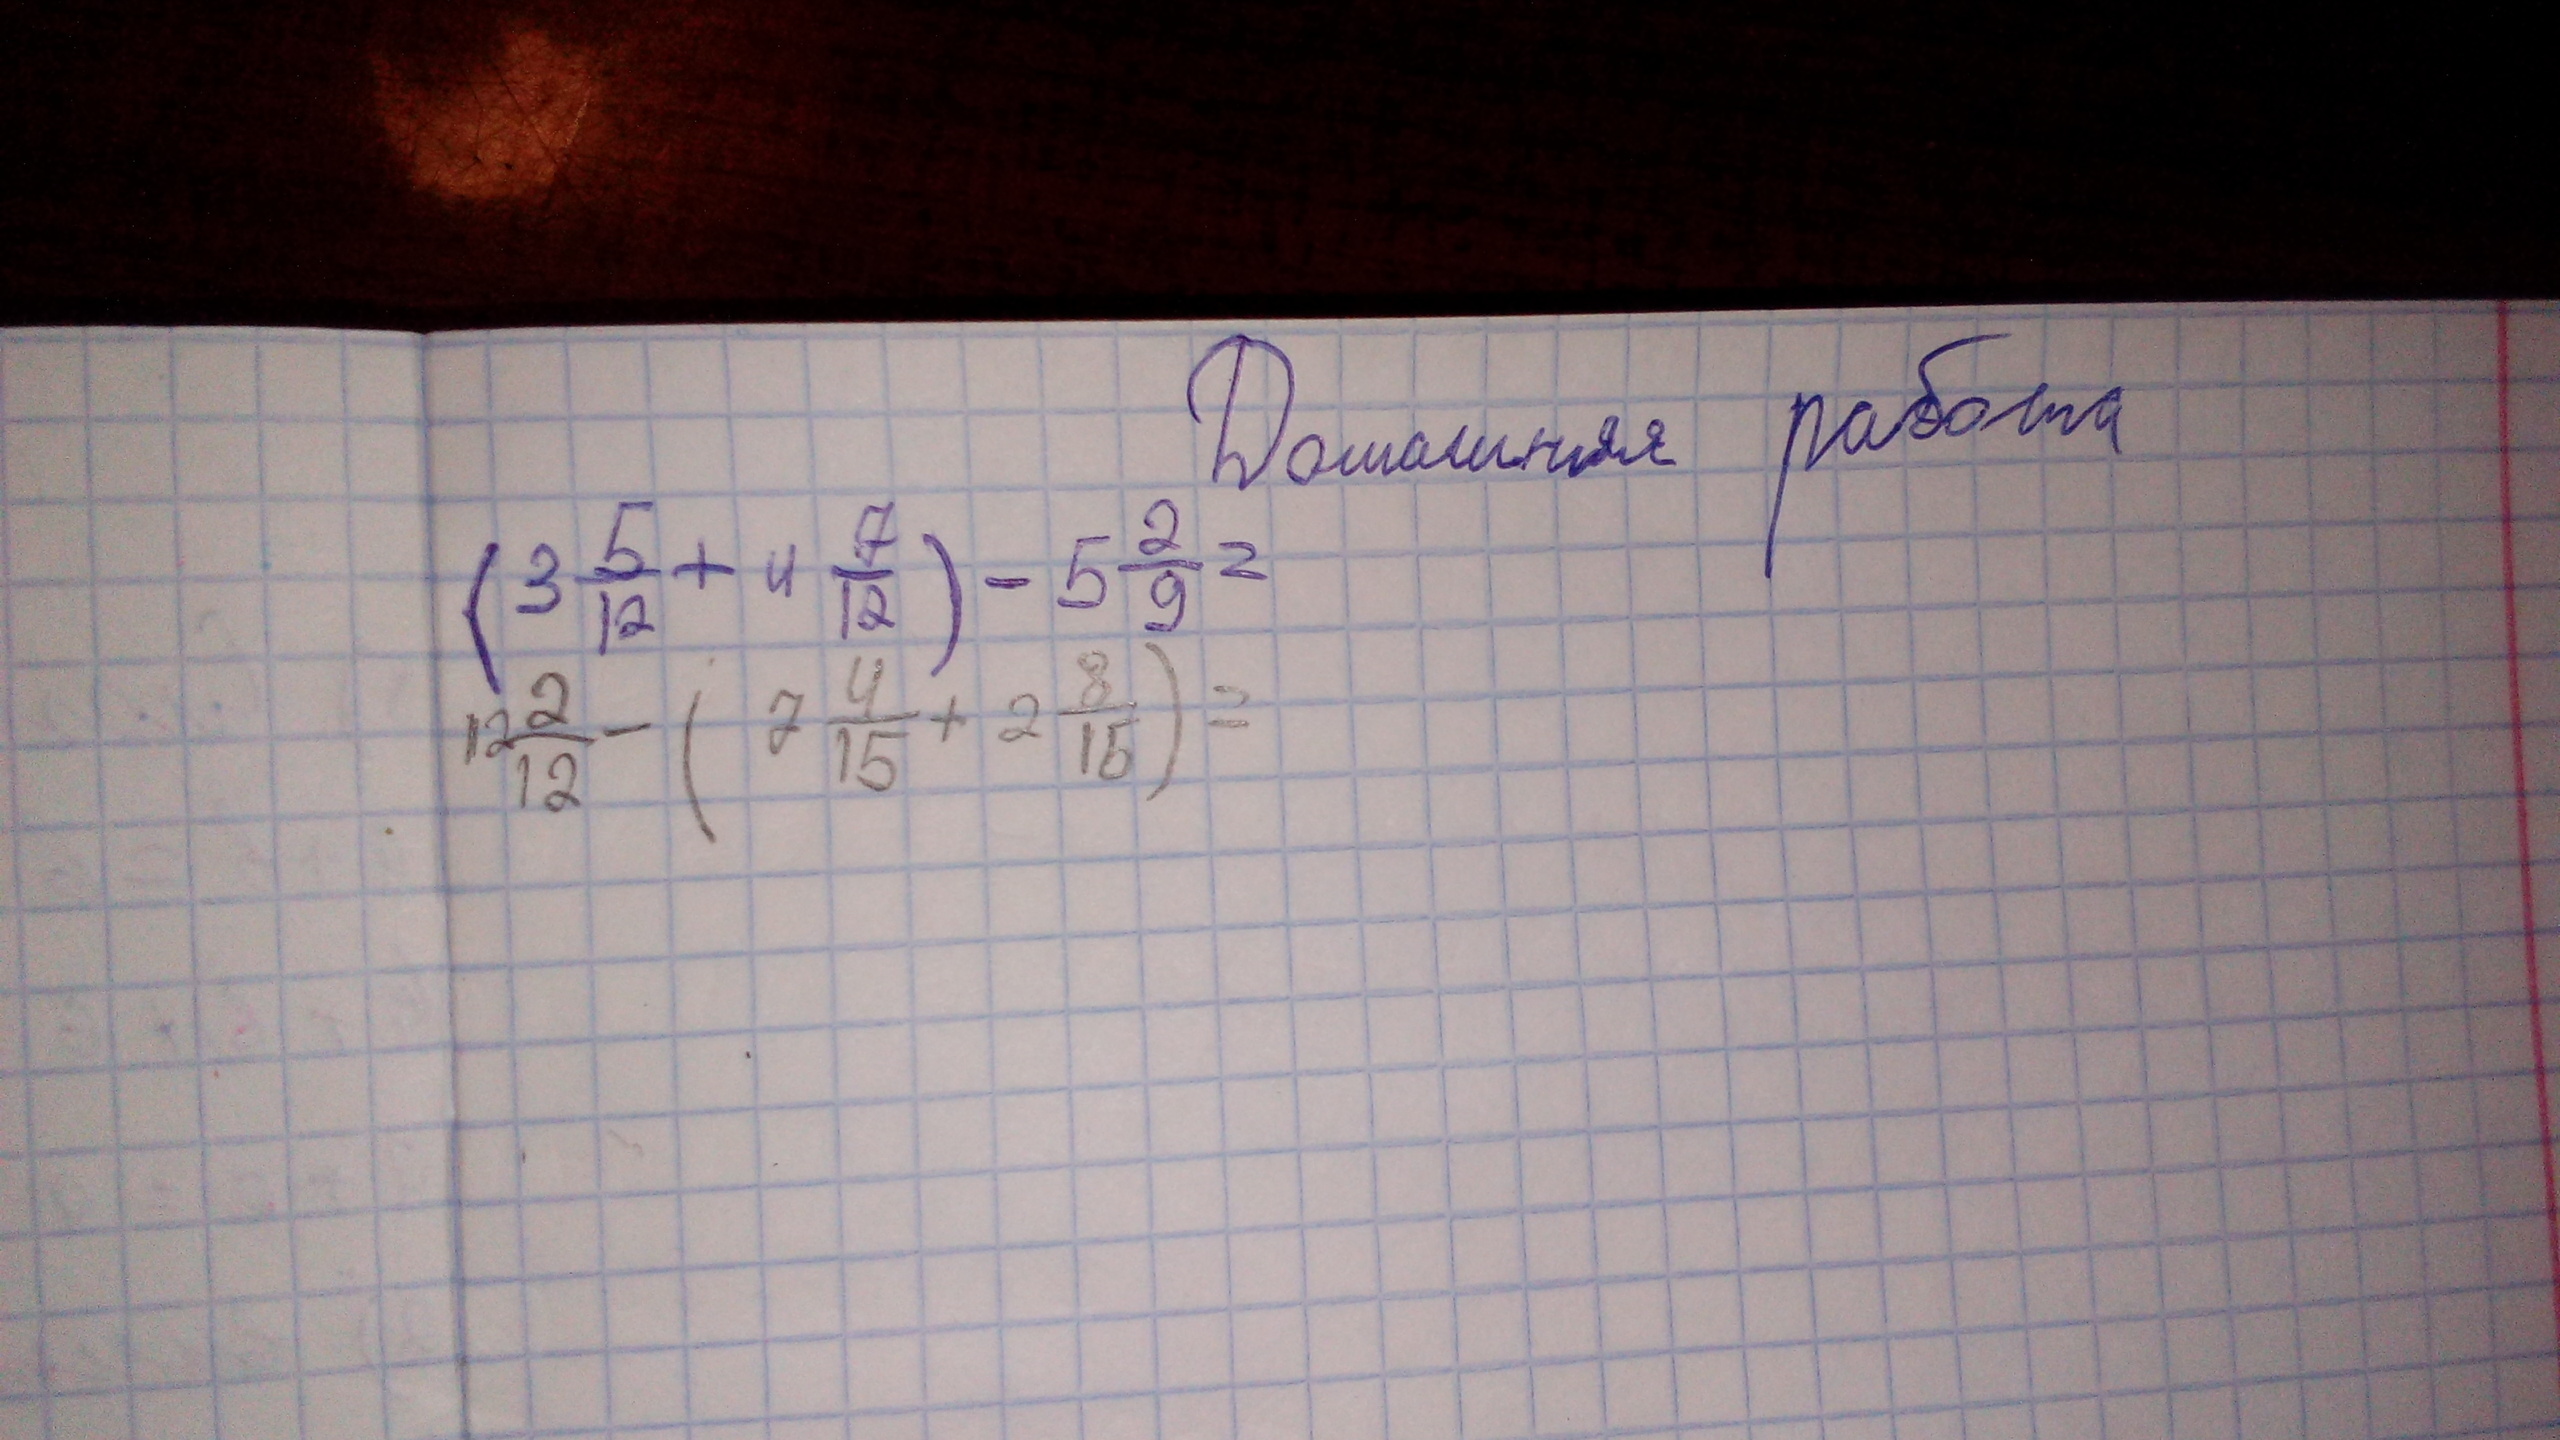 Домашняя работа
(3 5/12 + 4 7/12) - 5 2/9 =
12 2/12 - (7 4/15 + 2 8/15) =